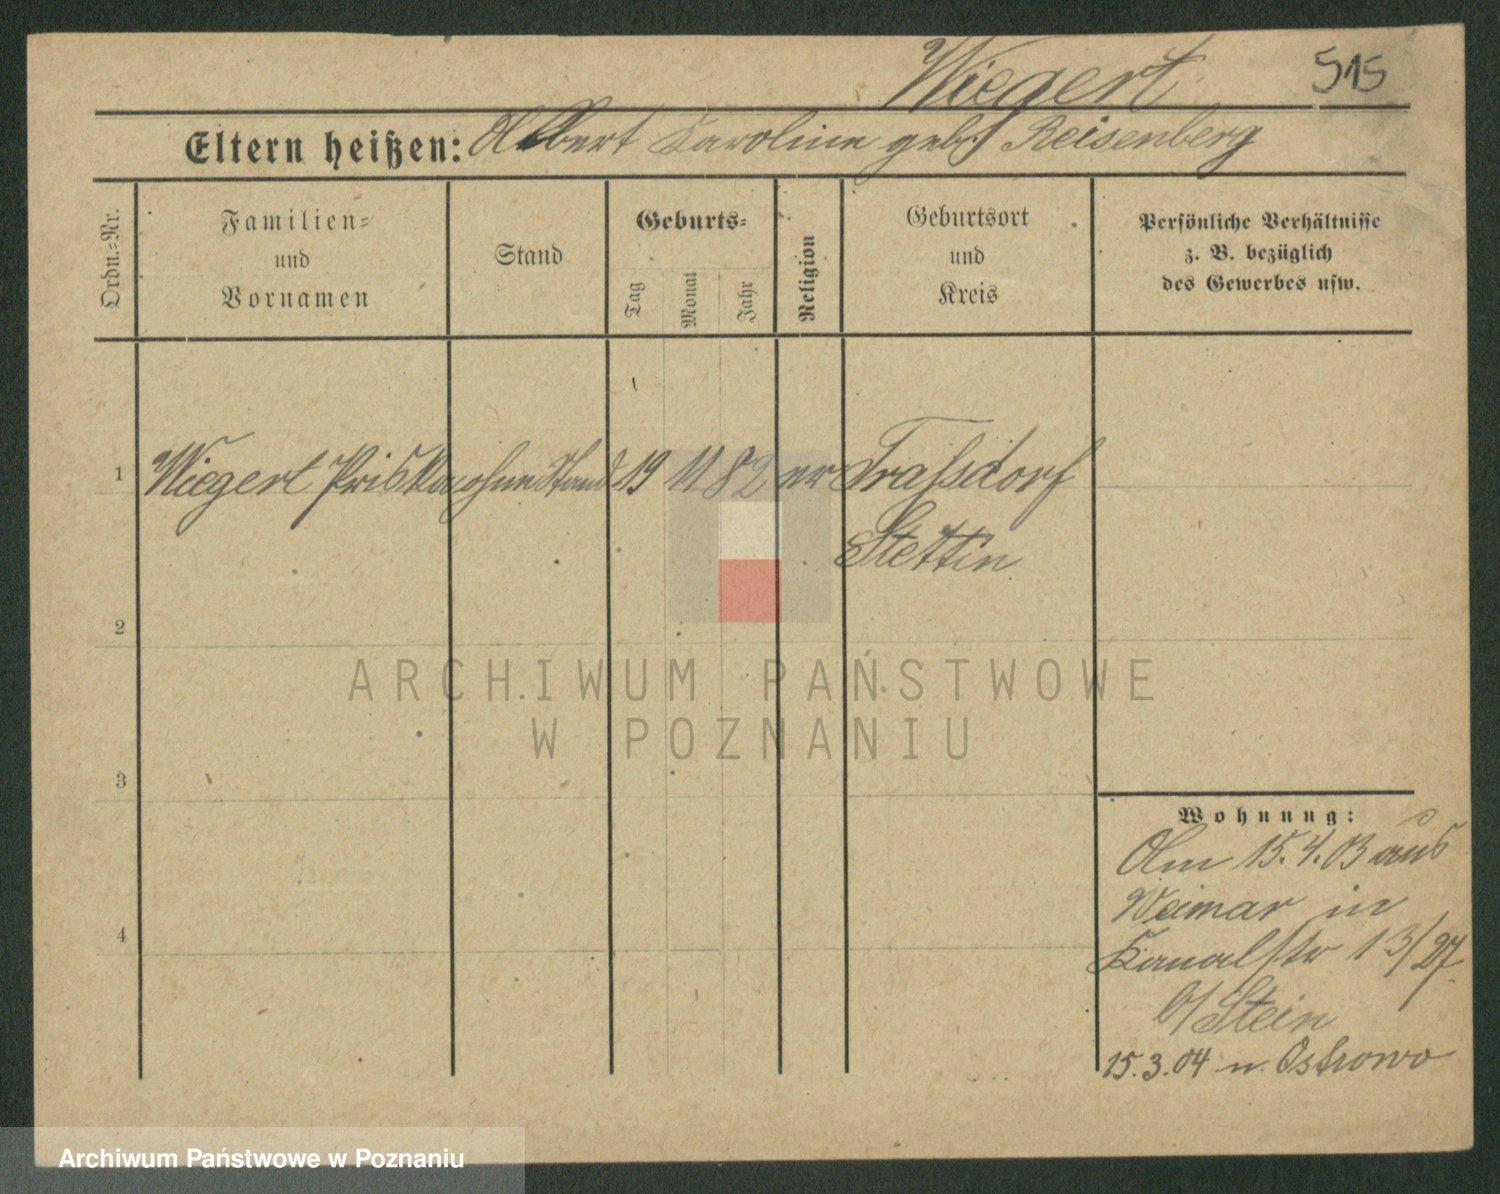 Wiegert 515
Eltern heißen: Albert Karoline geb. Reisenberg
Ordn.-Nr.
Familien-
und
Vornamen
Stand
Geburts-
Tag
Monat
Jahr
Religion
Geburtsort
und
Kreis
Persönliche Verhältnisse
z. B. bezüglich
des Gewerbes usw.
1 Wiegert Priska ohne Stand 19 11 82
Stettin
2
3
4
ARCHIWUM PAŃSTWOWE
W POZNANIU
Wohnung:
Am 15.4.03 aus
Weimar in
Kanalstr 13/27
b/ Stein
15.3.04 n. Ostrowo
Archiwum Państwowe w Poznaniu